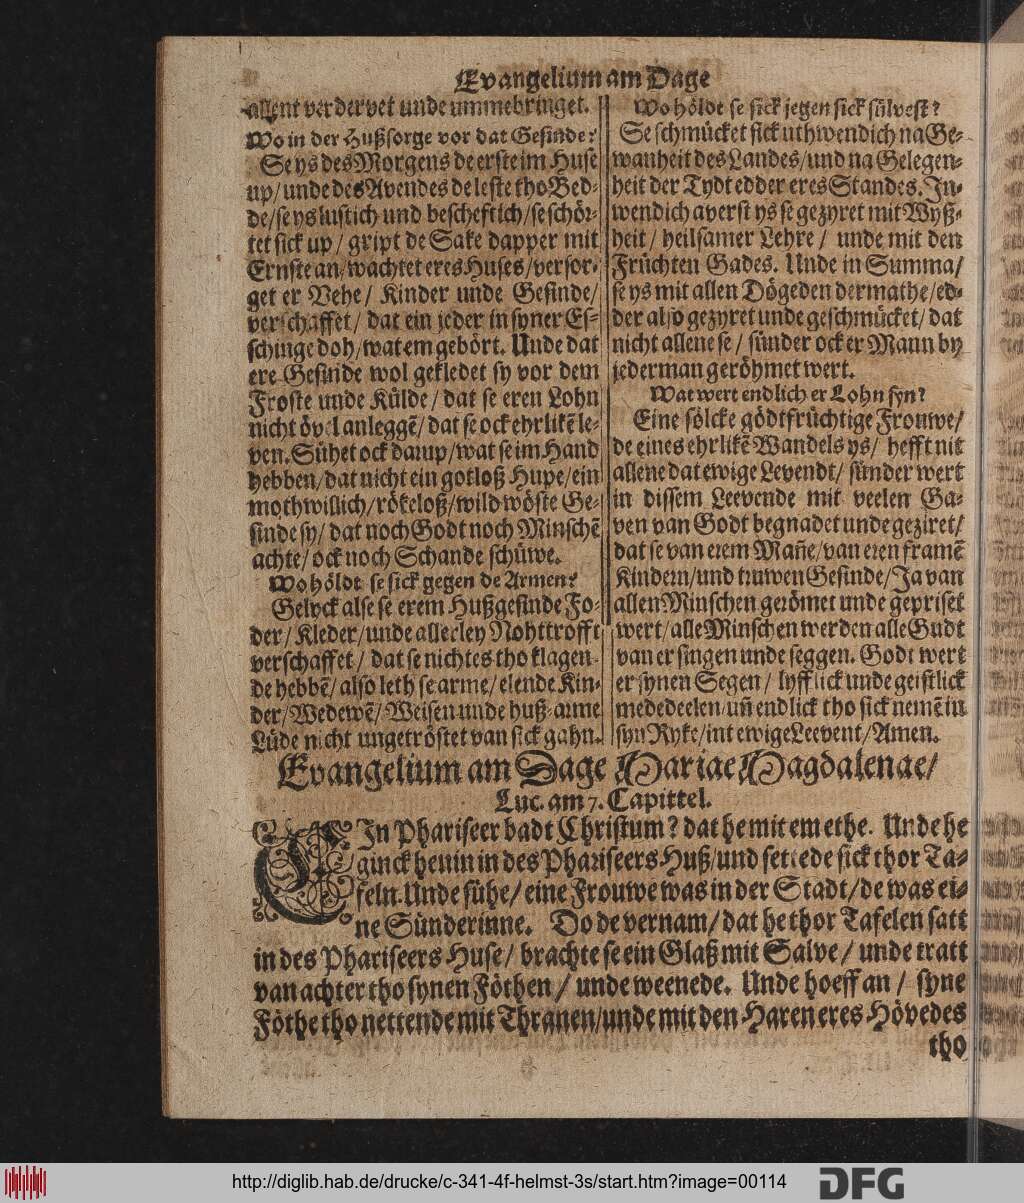 Evangelium am Dage
allent verdervet unde ummebringet.
Wo in der Hußsorge vor dat Gesinde?
Se ys des Morgens de erste im Huse
up/ unde des Avendes de leste tho Bed-
de/ se ys lustich und bescheftich/ se schör-
tet sick up/ gript de Sake dapper mit
Ernste an/ wachtet eres Huses/ versor-
get er Vehe/ Kinder unde Gesinde/
verschaffet/ dat ein jeder in syner Es-
schinge doh/ wat em gebört. Unde dat
ere Gesinde wol gekledet sy vor dem
Froste unde Külde/ dat se eren Lohn
nicht övel anleggē/ dat se ock ehrlikē le-
ven. Sühet ock darup/ wat se im Hand
hebben/ dat nicht ein gotloß Hupe/ ein
mothwillich/ rökeloß/ wild wöste Ge-
sinde sy/ dat noch Godt noch Minschē
achte/ ock noch Schande schüwe.
Wo höldt se sick gegen de Armen?
Gelyck alse se erem Hußgesinde Fo-
der/ Kleder/ unde allerley Nohttrofft
verschaffet/ dat se nichtes tho klagen-
de hebbē/ also leth se arme/ elende Kin-
der/ Wedewē/ Weisen unde huß-arme
Lüde nicht ungetröstet van sick gahn.
Wo höldt se sick jegen sick sülvest?
Se schmücket sick uthwendich na Ge-
wanheit des Landes/ und na Gelegen-
heit der Tydt edder eres Standes. In-
wendich averst ys se gezyret mit Wyß-
heit/ heilsamer Lehre/ unde mit den
Früchten Gades. Unde in Summa/
se ys mit allen Dögeden dermathe/ ed-
der also gezyret unde geschmücket/ dat
nicht allene se/ sünder ock er Mann by
jederman geröhmet wert.
Wat wert endlich er Lohn syn?
Eine sölcke gödtfrüchtige Frouwe/
de eines ehrlikē Wandels ys/ hefft nit
allene dat ewige Levendt/ sünder wert
in dissem Leevende mit veelen Ga-
ven van Godt begnadet unde geziret/
dat se van erem Mañe/ van eren framē
Kindern/ und truwen Gesinde/ Ja van
allen Minschen gerömet unde geprisēt
wert/ alle Minschen werden alle Gudt
van er singen unde seggen. Godt wert
er synen Segen/ lyfflick unde geistlick
mededeelen/ uñ endlick tho sick nemē in
syn Ryke/ int ewige Leevent/ Amen.
Evangelium am Dage Mariae Magdalenae/
Luc. am 7. Capittel.
EIn Phariseer badt Christum? dat he mit em ethe. Unde he
ginck henin in des Phariseers Huß/ und settede sick thor Ta-
feln. Unde sühe/ eine Frouwe was in der Stadt/ de was ei-
ne Sünderinne. Do de vernam/ dat he thor Tafelen satt
in des Phariseers Huse/ brachte se ein Glaß mit Salve/ unde tratt
van achter tho synen Föthen/ unde weenede. Unde hoeff an/ syne
Föthe tho nettende mit Thranen/ unde mit den Haren eres Hövedes
tho
http://diglib.hab.de/drucke/c-341-4f-helmst-3s/start.htm?image=00114
DFG